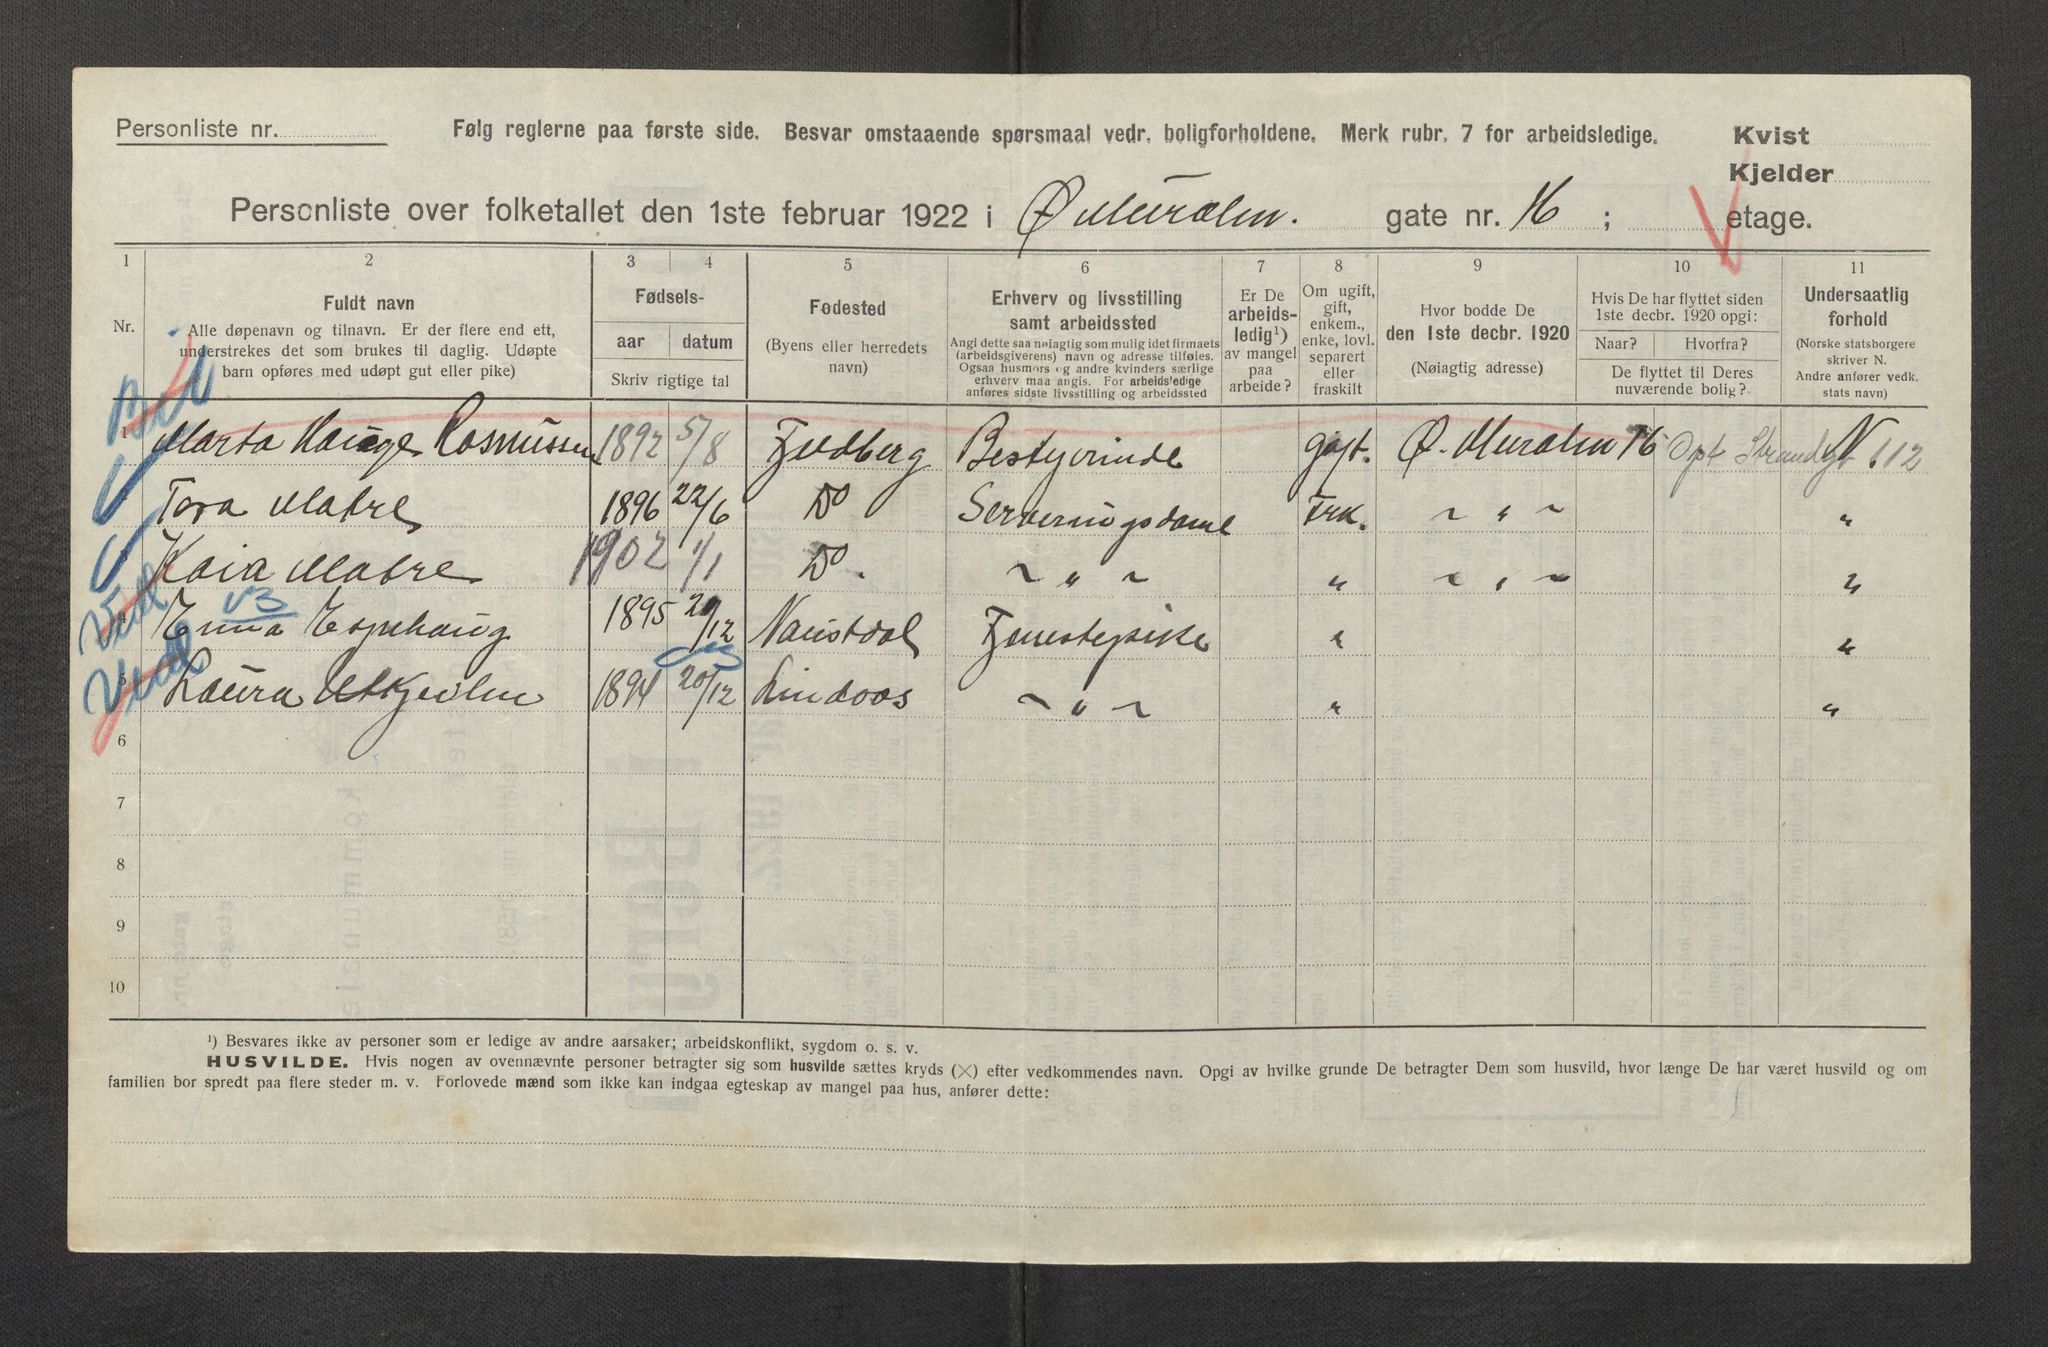 Personliste nr.
Følg reglerne paa første side. Besvar omstaaende spørsmaal vedr. boligforholdene. Merk rubr. 7 for arbeidsledige.
Kvist
Kjelder
Personliste over folketallet den 1ste februar 1922 i Ø. Muralm. gate nr. 16; etage.
1 2 3 4 5 6 7 8 9 10 11
Nr.
Fuldt navn
Alle døpenavn og tilnavn. Er der flere end ett,
understrekes det som brukes til daglig. Udøpte
barn opføres med udøpt gut eller pike)
Fødsels-
aar datum
Skriv rigtige tal
Fødested
(Byens eller herredets
navn)
Erhverv og livsstilling
samt arbeidssted
Angi dette saa nøiagtig som mulig idet firmaets
(arbeidsgiverens) navn og adresse tilføies.
Ogsaa husmors og andre kvinders særlige
erhverv maa angis. For arbeidsledige
anføres sidste livsstilling og arbeidssted
Er De
arbeids-
ledig¹)
av mangel
paa
arbeide?
Om ugift,
gift,
enkem.,
enke, lovl.
separert
eller
fraskilt
Hvor bodde De
den 1ste decbr. 1920
(Nøiagtig adresse)
Hvis De har flyttet siden
1ste decbr. 1920 opgi:
Naar? Hvorfra?
De flyttet til Deres
nuværende bolig?
Undersaatlig
forhold
(Norske statsborgere
skriver N.
Andre anfører vedk.
stats navn)
1 Marta Hauge Rasmussen 1892 5/8 Fjeldberg Bestyrinde gift. Ø. Muralm 16 Opt Strandgt 112 N.
Tora Matre 1896 22/6 Do Serveringsdame Frk. ~ " ~ "
Kaia Matre 1902 1/1 Do. ~ " ~ " ~ " ~ "
4 Emma Espehaug 1895 20/12 Naustdal Tjenestepike " "
V3
5 Laura Utkjeilen 1894 20/12 Lindaas ~ " ~ " "
6
7
8
9
10
¹) Besvares ikke av personer som er ledige av andre aarsaker; arbeidskonflikt, sygdom o. s. v.
HUSVILDE. Hvis nogen av ovennævnte personer betragter sig som husvilde sættes kryds (×) efter vedkommendes navn. Opgi av hvilke grunde De betragter Dem som husvild, hvor længe De har været husvild og om
familien bor spredt paa flere steder m. v. Forlovede mænd som ikke kan indgaa egteskap av mangel paa hus, anfører dette: